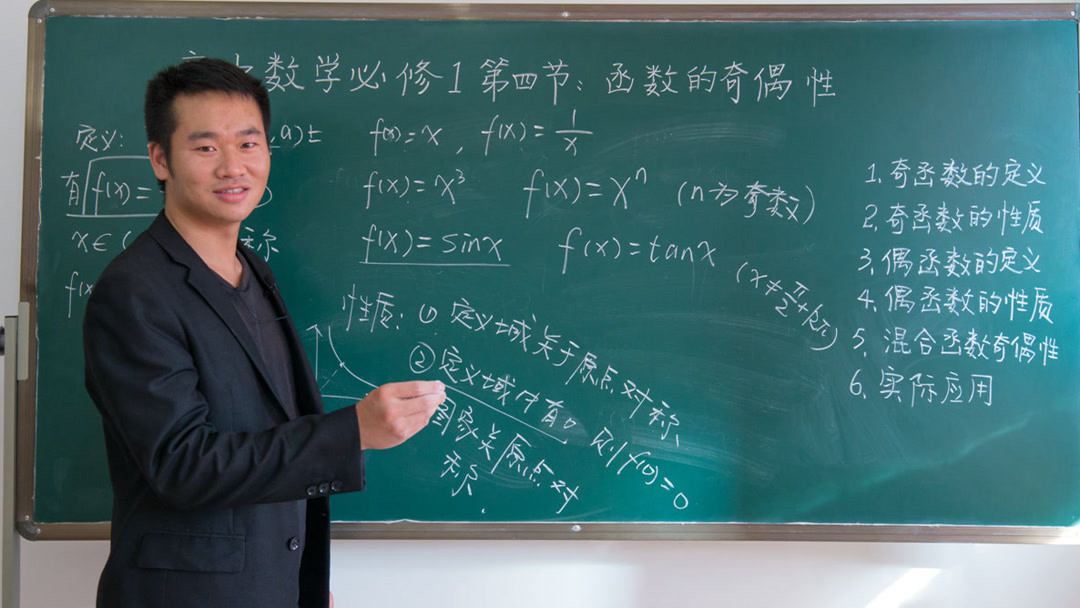 数学必修1 第四节：函数的奇偶性
定义：
,a)上
有 f(x)=
)
x∈(
称
f(x
f(x)=x , f(x)=1/x
f(x)=x³ f(x)=xⁿ (n为奇数)
f(x)=sinx f(x)=tanx (x≠π/2+kπ)
性质：① 定义域关于原点对称
② 定义域内有0 则f(0)=0
图象关于原点对
称.
1.奇函数的定义
2.奇函数的性质
3.偶函数的定义
4.偶函数的性质
5.混合函数奇偶性
6.实际应用